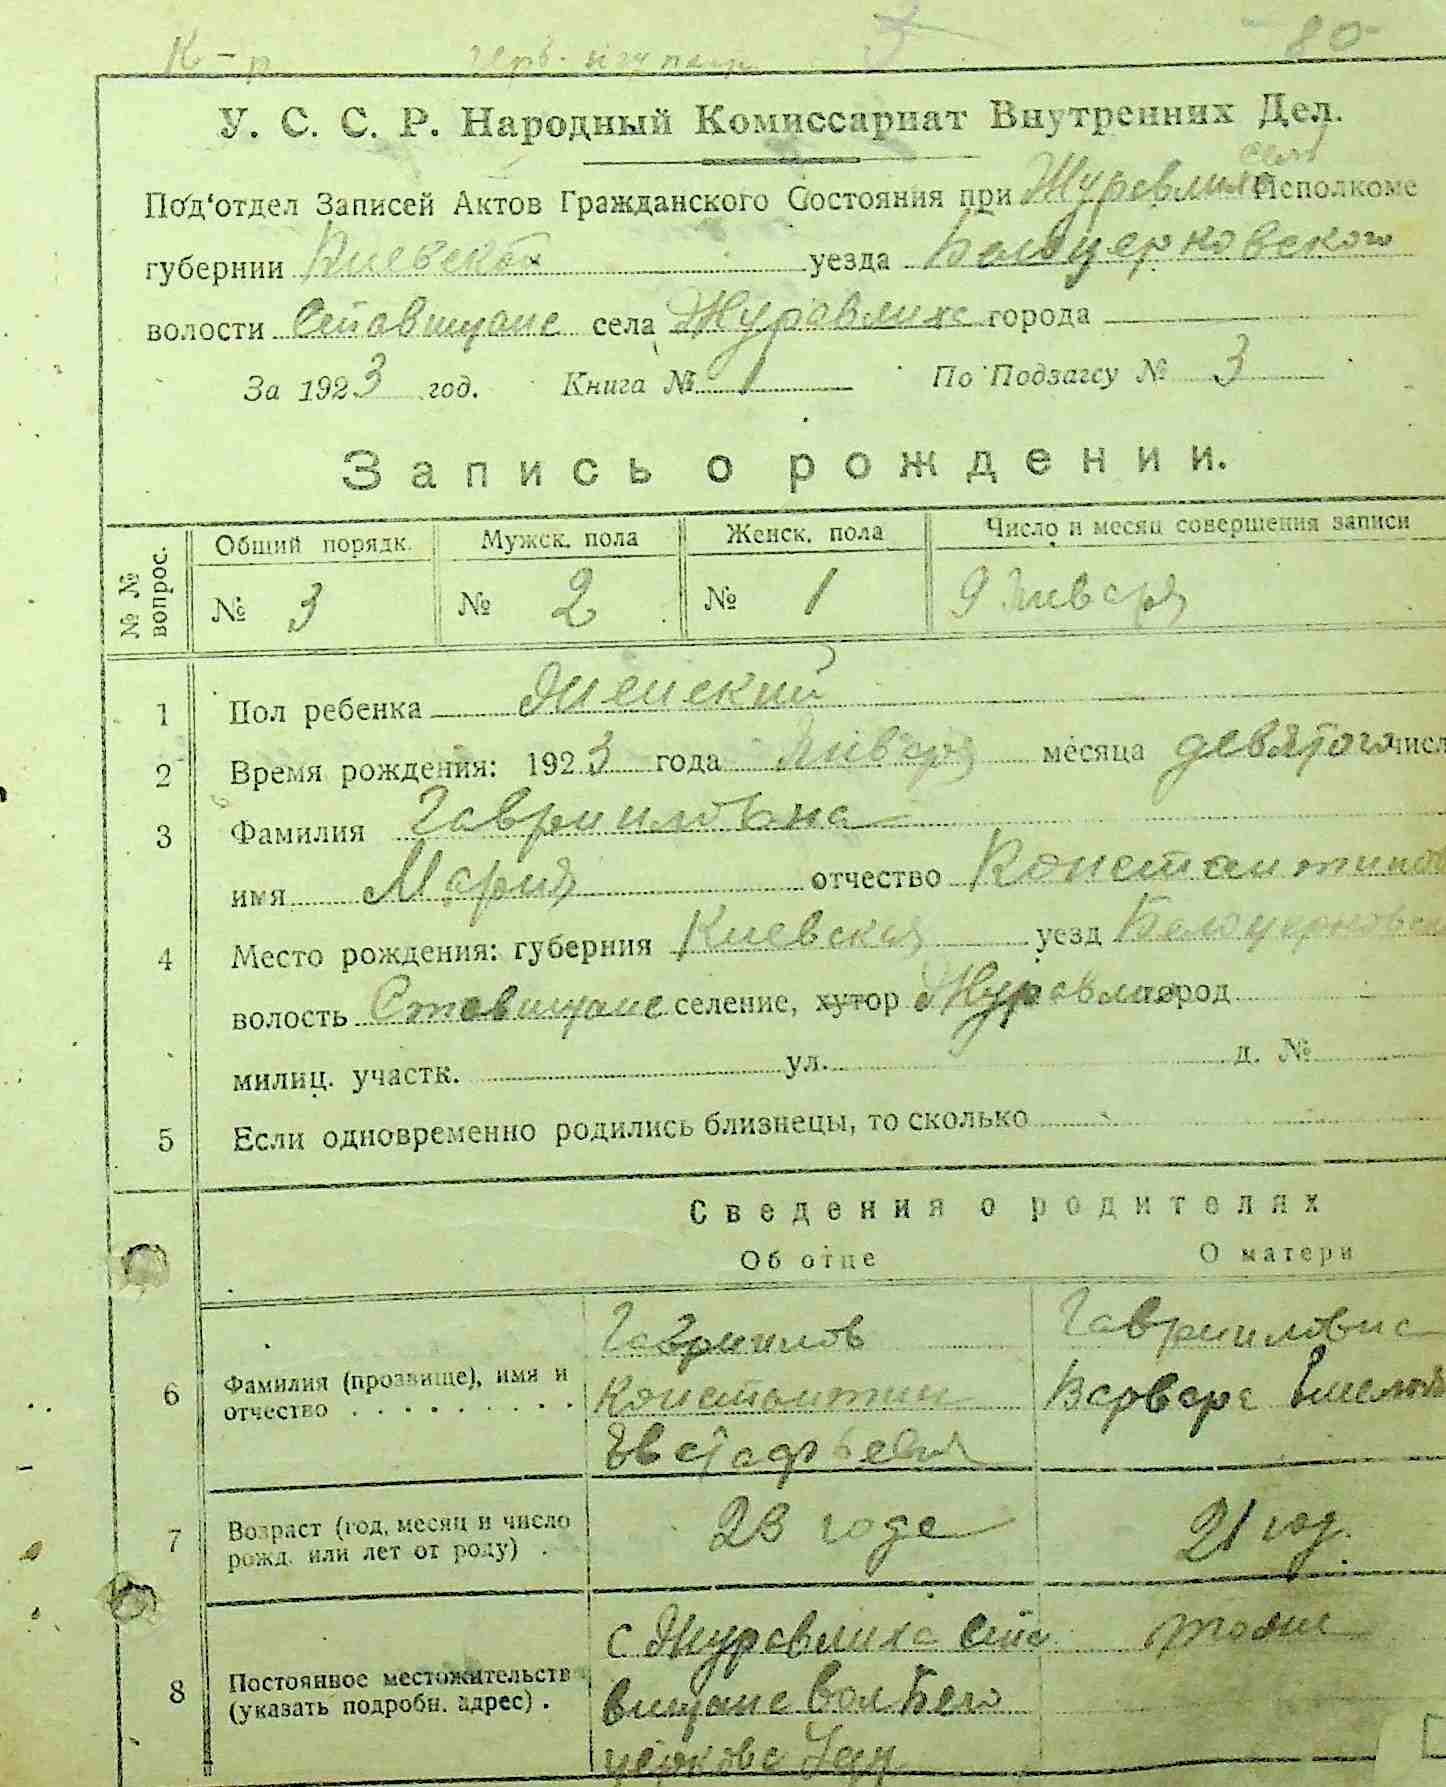 80
У. С. С. Р. Народный Комиссариат Внутренних Дел.
Под'отдел Записей Актов Гражданского Состояния при Журавлиха Исполкоме
губернии Киевской уезда Белоцерковского
волости Ставищанс села Журавлиха города
За 1923 год. Книга № 1 По Подзагсу № 3
Запись о рождении.
№ № вопрос. Общий порядк. Мужск. пола Женск. пола Число и месяц совершения записи
№ 3 № 2 № 1 9 Января
1 Пол ребенка Женский
2 Время рождения: 1923 года Января месяца девятого числ
3 Фамилия Гавриловна
имя Мария отчество Константинов
4 Место рождения: губерния Киевская уезд Белоцерковск
волость Ставищанс селение, хутор Журавлиха город
милиц. участк. ул. д. №
5 Если одновременно родились близнецы, то сколько
Сведения о родителях
Об отце О матери
6 Фамилия (прозвище), имя и отчество Гаврилов Гавриловна
Константин Варвара
Евстафьевич
7 Возраст (год, месяц и число рожд. или лет от роду) 23 года 21 год.
8 Постоянное местожительств (указать подробн. адрес) с Журавлиха Ста тоже
вищанс вол Бело
церковс Уезд